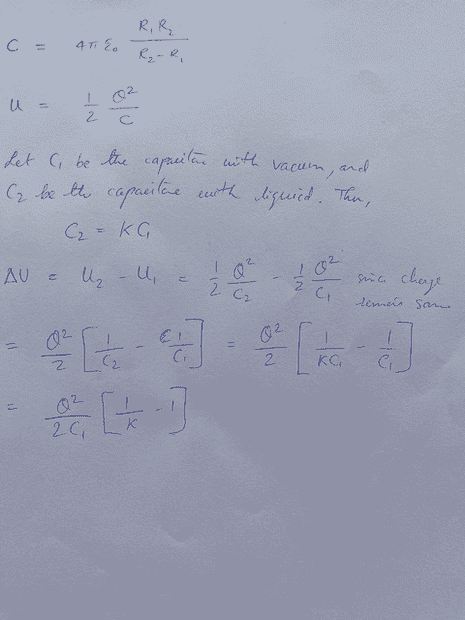 C = 4πε₀ R₁R₂ / (R₂ - R₁)
U = 1/2 Q²/C
Let C₁ be the capacitance with vacuum, and
C₂ be the capacitance with liquid. Then,
C₂ = KC₁
ΔU = U₂ - U₁ = 1/2 Q²/C₂ - 1/2 Q²/C₁ since charge
remains same
= Q²/2 [1/C₂ - 1/C₁] = Q²/2 [1/KC₁ - 1/C₁]
= Q²/2C₁ [1/K - 1]